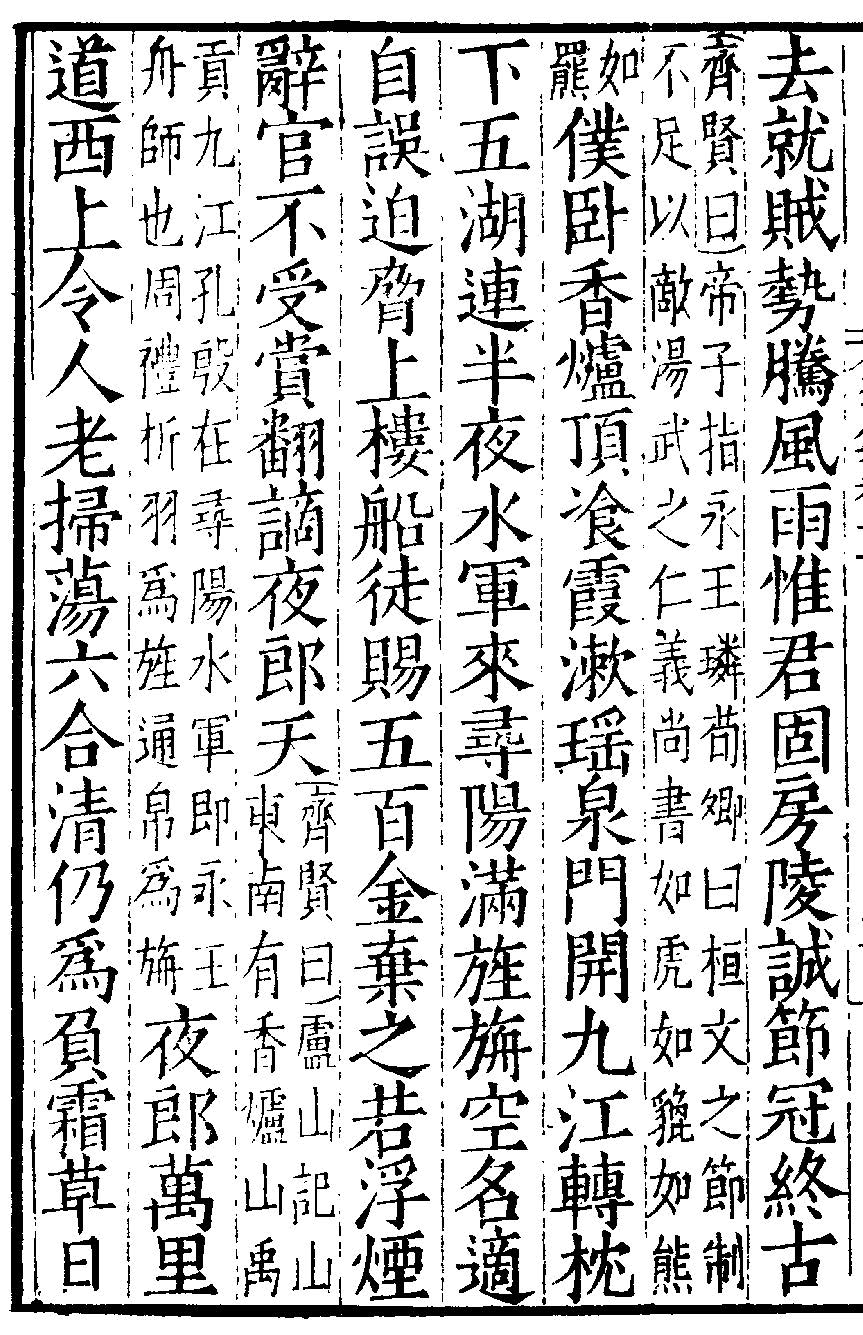 去就賊勢騰風雨惟君固房陵誠節冠終古
齊賢曰帝子指永王璘荀卿曰桓文之節制
不足以敵湯武之仁義尚書如虎如貔如熊
如
羆
僕卧香爐頂飡霞漱瑶泉門開九江轉枕
下五湖連半夜水軍來尋陽滿旌旃空名適
自誤迫脅上樓船徒賜五百金棄之若浮煙
辭官不受賞翻謫夜郎天
齊賢曰盧山記山
東南有香爐山禹
貢九江孔殷在尋陽水軍即永王
舟師也周禮析羽爲旌通帛爲旃
夜郎萬里
道西上令人老掃蕩六合清仍爲負霜草日